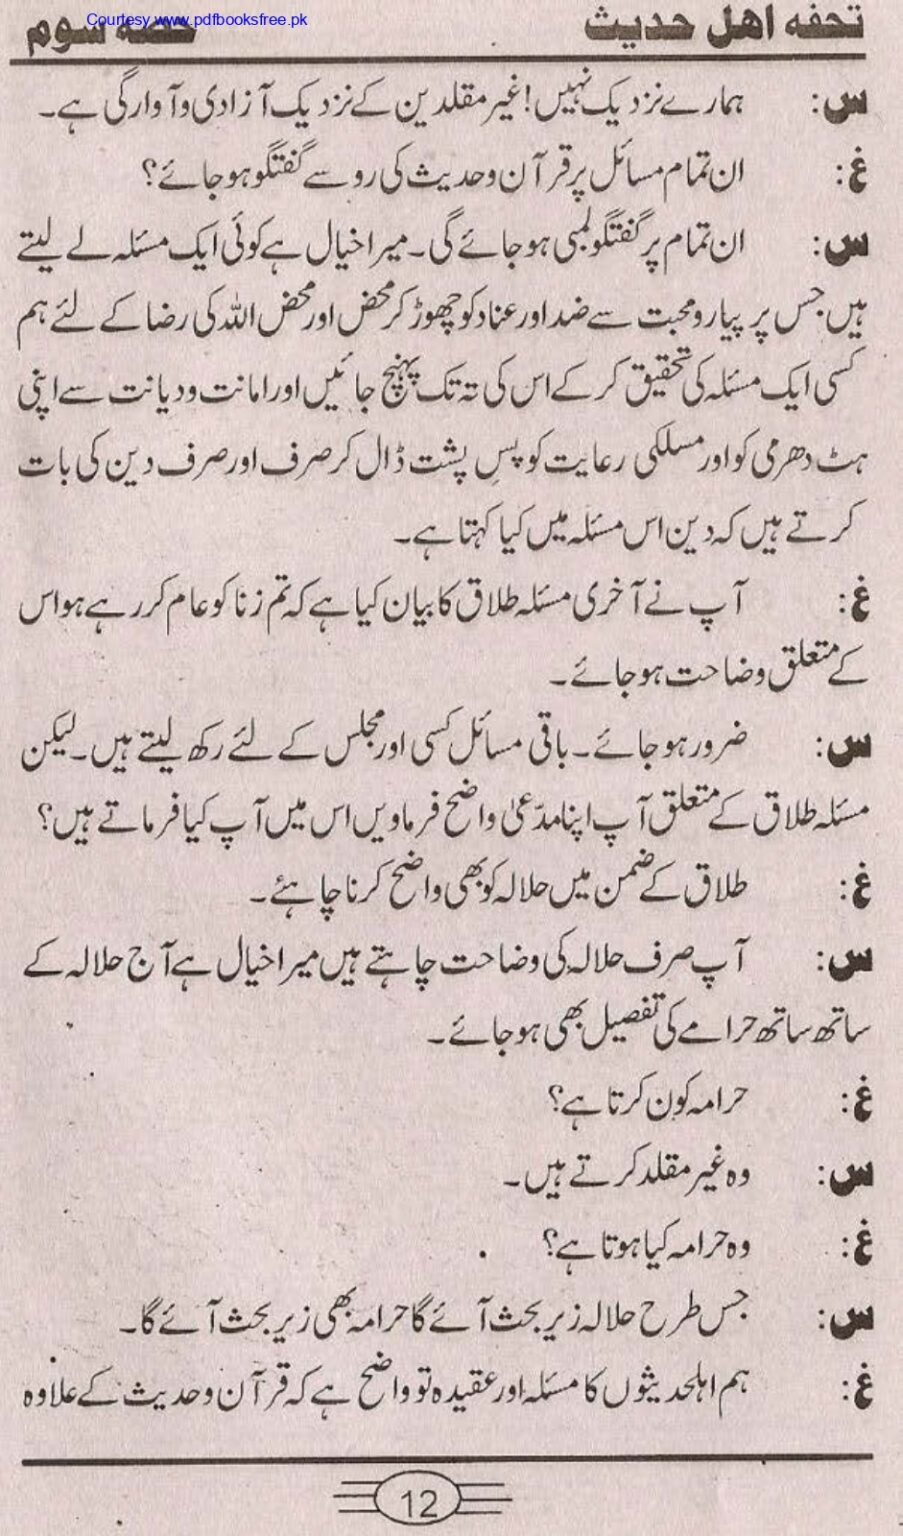 Courtesy www.pdfbooksfree.pk
تحفہ اهل حدیث حصہ سوم
س: ہمارے نزدیک نہیں! غیر مقلدین کے نزدیک آزادی و آوارگی ہے۔
غ: ان تمام مسائل پر قرآن و حدیث کی رو سے گفتگو ہو جائے؟
س: ان تمام پر گفتگو لمبی ہو جائے گی۔ میرا خیال ہے کوئی ایک مسئلہ لے لیتے
ہیں جس پر پیار و محبت سے ضد اور عناد کو چھوڑ کر محض اور محض اللہ کی رضا کے لئے ہم
کسی ایک مسئلہ کی تحقیق کر کے اس کی تہ تک پہنچ جائیں اور امانت و دیانت سے اپنی
ہٹ دھرمی کو اور مسلکی رعایت کو پسِ پشت ڈال کر صرف اور صرف دین کی بات
کرتے ہیں کہ دین اس مسئلہ میں کیا کہتا ہے۔
غ: آپ نے آخری مسئلہ طلاق کا بیان کیا ہے کہ تم زنا کو عام کر رہے ہو اس
کے متعلق وضاحت ہو جائے۔
س: ضرور ہو جائے۔ باقی مسائل کسی اور مجلس کے لئے رکھ لیتے ہیں۔ لیکن
مسئلہ طلاق کے متعلق آپ اپنا مدّعیٰ واضح فرماویں اس میں آپ کیا فرماتے ہیں؟
غ: طلاق کے ضمن میں حلالہ کو بھی واضح کرنا چاہئے۔
س: آپ صرف حلالہ کی وضاحت چاہتے ہیں میرا خیال ہے آج حلالہ کے
ساتھ ساتھ حرامے کی تفصیل بھی ہو جائے۔
غ: حرامہ کون کرتا ہے؟
س: وہ غیر مقلد کرتے ہیں۔
غ: وہ حرامہ کیا ہوتا ہے؟
س: جس طرح حلالہ زیر بحث آئے گا حرامہ بھی زیر بحث آئے گا۔
غ: ہم اہلحدیثوں کا مسئلہ اور عقیدہ تو واضح ہے کہ قرآن و حدیث کے علاوہ
12